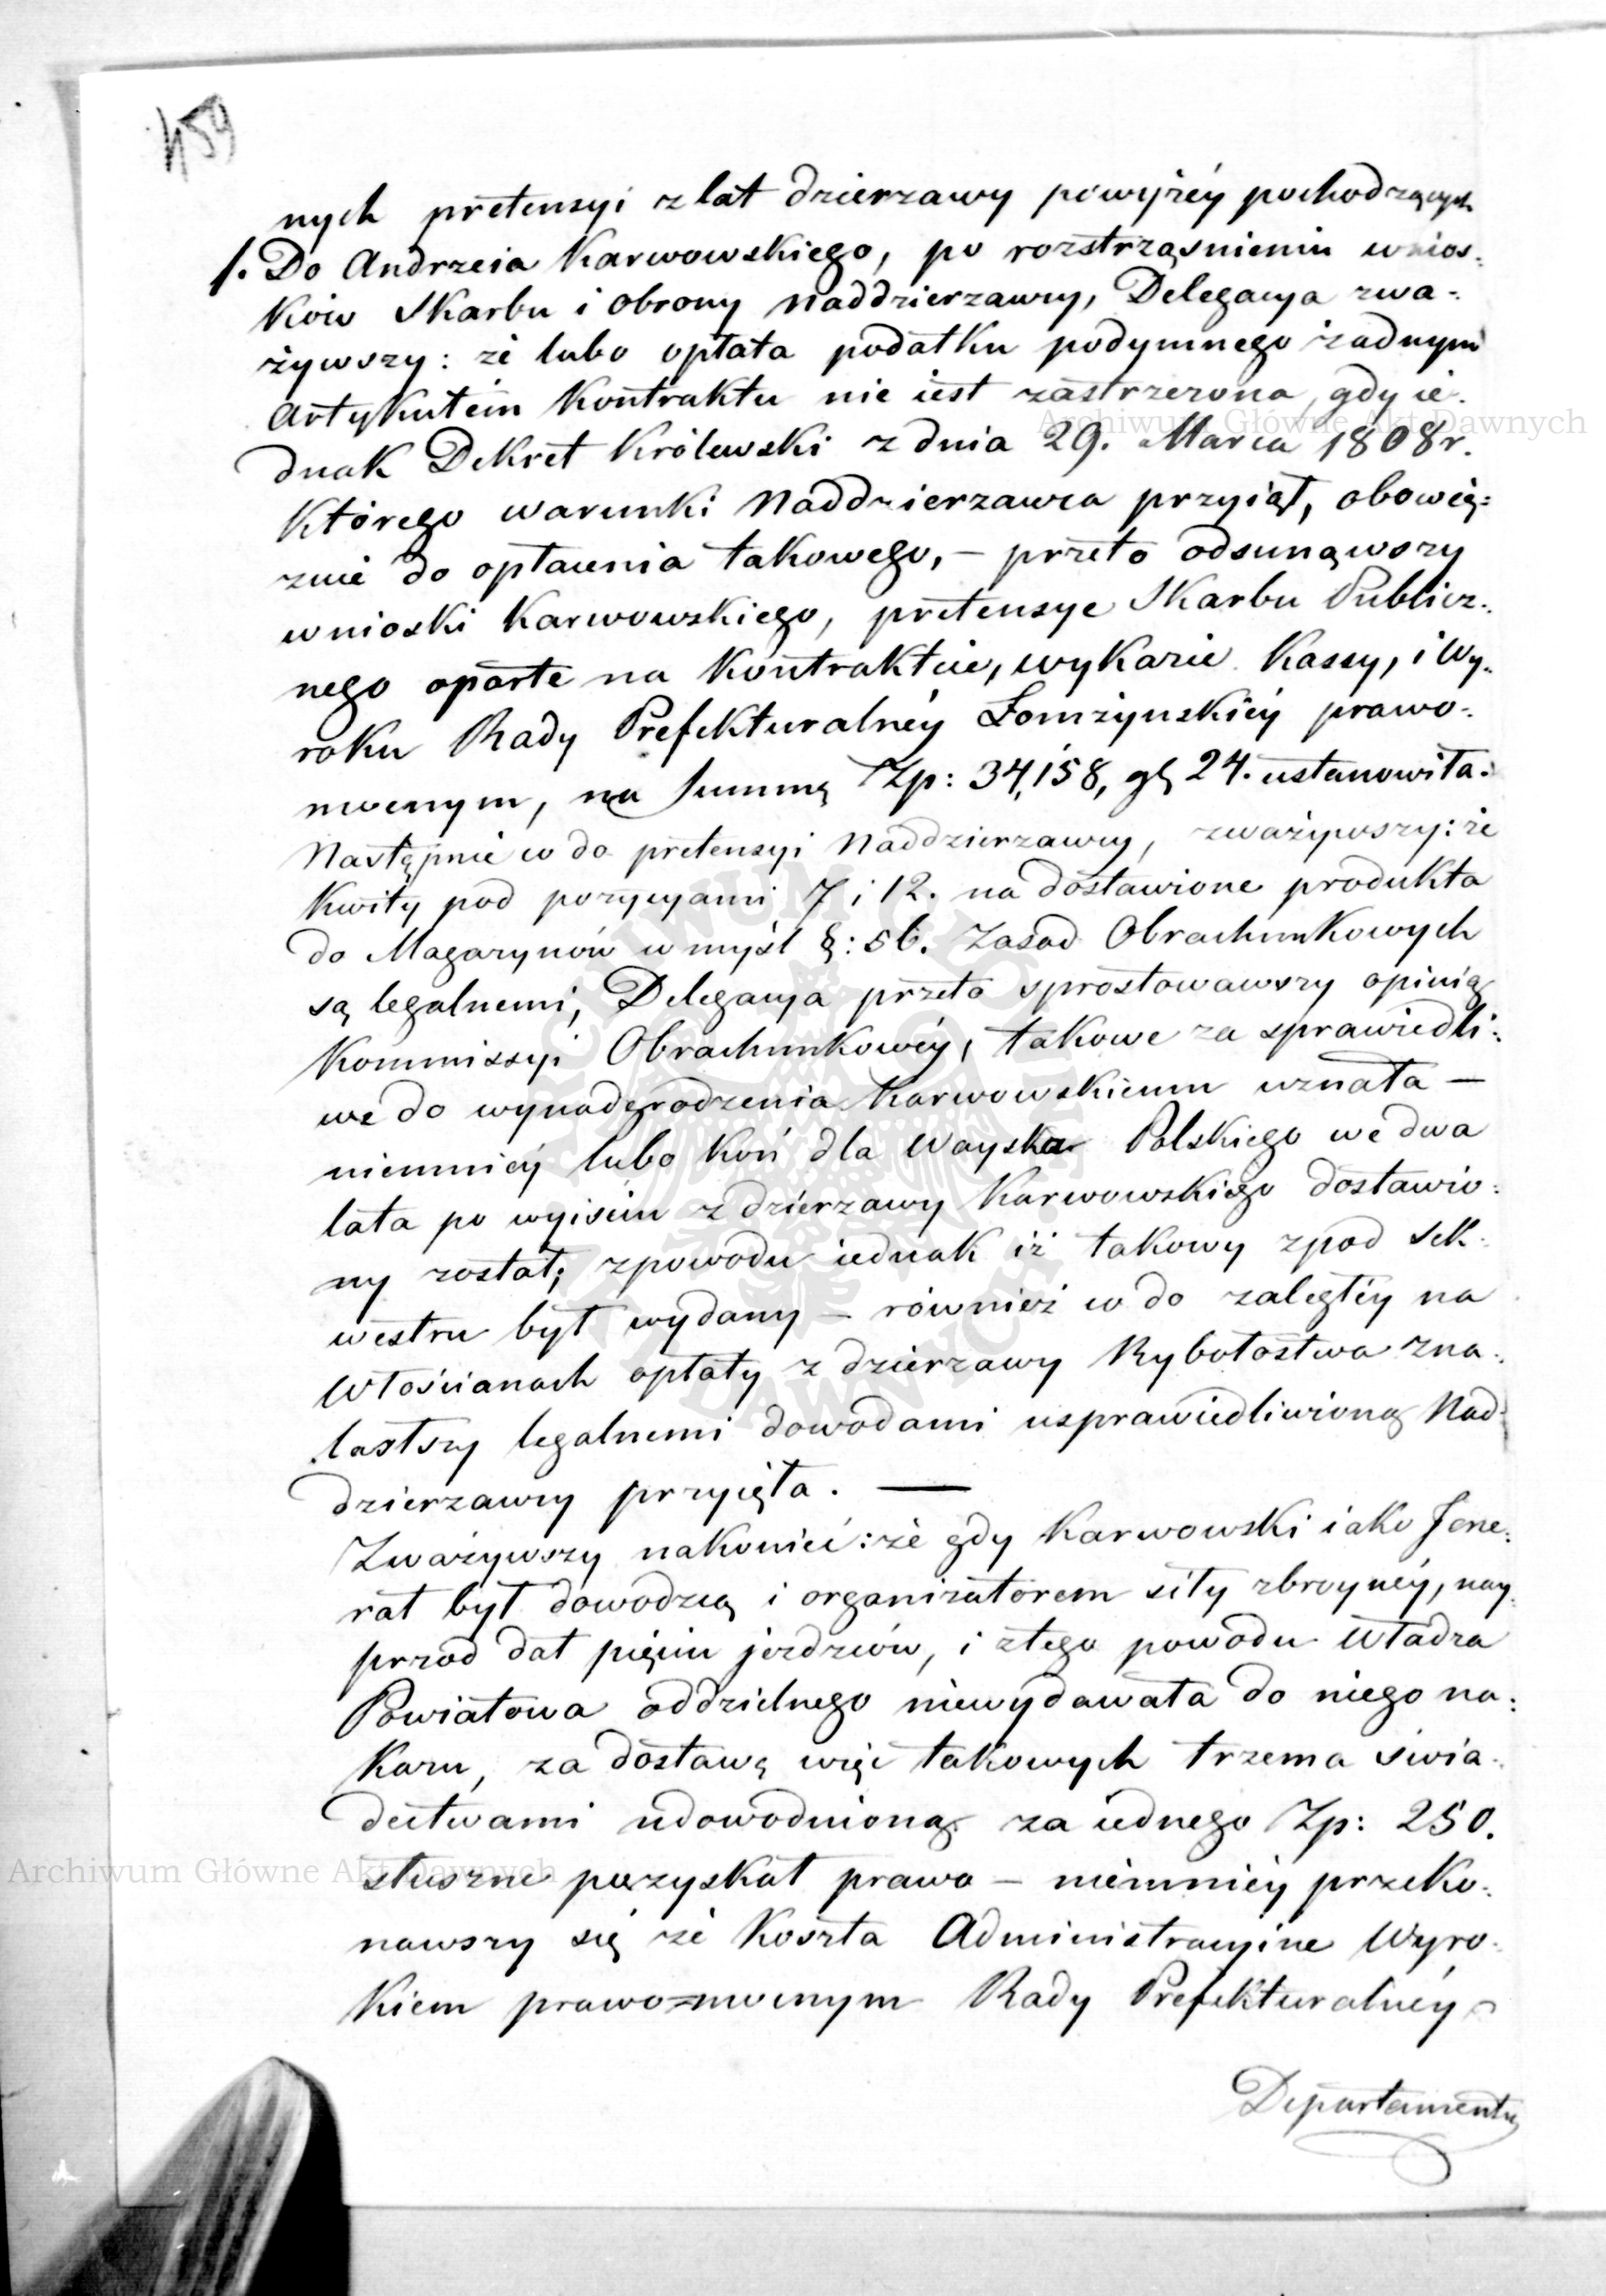 459
nych pretensyi z lat dzierzawy powyżéy pochodzących
1. Do Andrzeia Karwowskiego, po rozstrząsnieniu wnios-
ków Skarbu i obrony Naddzierzawcy, Delegacya zwa-
żywszy: że lubo opłata podatku podymnego żadnym
Artykułem Kontraktu nie iest zastrzeżona, gdy ie-
dnak Dekret Królewski z dnia 29. Marca 1808 r.
którego warunki Naddzierzawca przyiął, obowią-
zuie do opłacenia takowego, – przeto odsunąwszy
wnioski Karwowskiego, pretensye Skarbu Publicz-
nego oparte na Kontrakcie, wykazie Kassy, i Wy-
roku Rady Prefekturalnéy Łomżyńskiéy prawo-
mocnym, na Summę Zp: 34,158, g 24. ustanowiła.
Następnie co do pretensyi Naddzierzawcy, zważywszy: że
kwity pod pozycyami 7 i 12. na dostawione produkta
do Magazynów w myśl §: 56. Zasad Obrachunkowych
są legalnemi, Delegacya przeto sprostowawszy opinią
Kommissyi Obrachunkowéy, takowe za sprawiedli-
we do wynadgrodzenia Karwowskiemu uznała –
niemniéy lubo koń dla Woyska Polskiego we dwa
lata po wyiściu z dzierzawy Karwowskiego dostawio-
ny został; z powodu iednak iż takowy z pod Sek-
westru był wydany – również co do zaległéy na
Włościanach opłaty z dzierzawy Rybołostwa zna-
lazłszy legalnemi dowodami usprawiedliwioną Nad-
dzierzawcy przyięła. —
Zważywszy nakoniec: że gdy Karwowski iako Jene-
rał był dowodzcą i organizatorem siły zbroynéy, nay-
przod dał pięciu jezdzców, i z tego powodu Władza
Powiatowa oddzielnego niewydawała do niego na-
kazu, za dostawę więc takowych trzema świa-
dectwami udowodnioną za iednego Zp: 250.
słuszne pozyskał prawo – niemniéy przeko-
nawszy się że Koszta Administracyine Wyro-
kiem prawomocnym Rady Prefekturalnéy
Departamentu
Archiwum Główne Akt Dawnych
Archiwum Główne Akt Dawnych